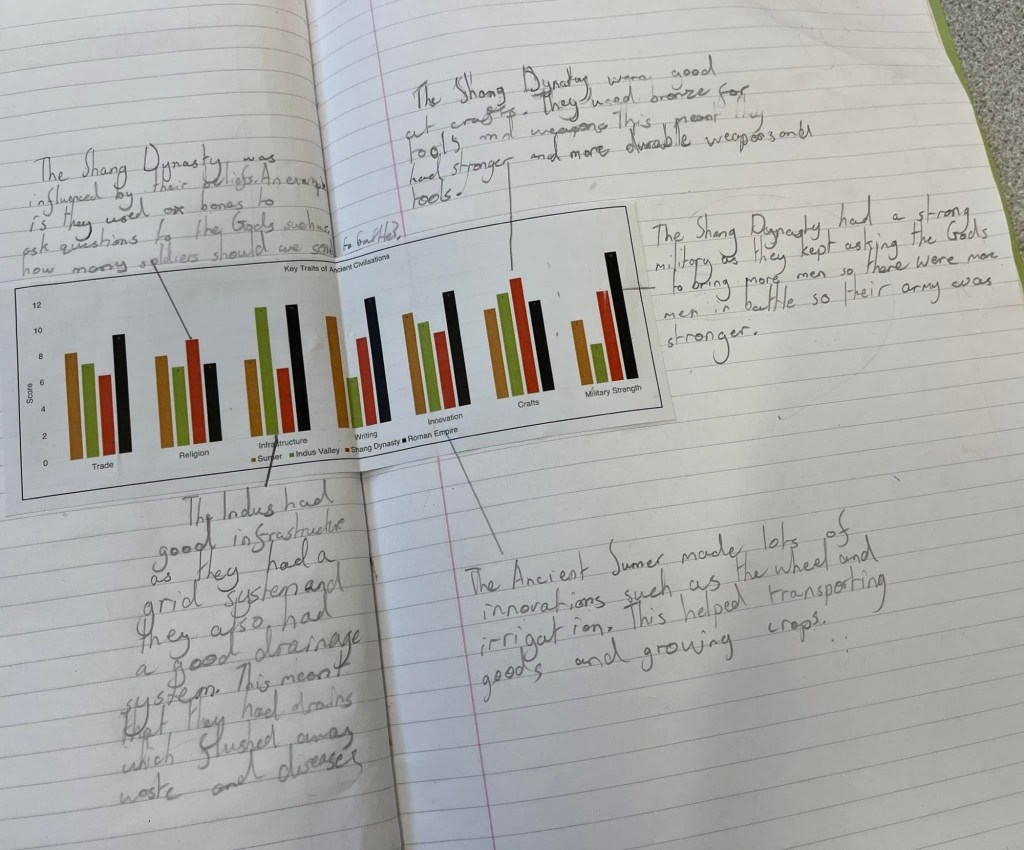 The Shang Dynasty was
influenced by their beliefs. An example
is they used ox bones to
ask questions to the Gods such as,
how many soldiers should we send to battle?
The Shang Dynatsy were good
at crafts. They used bronze for
tools, and weapons This meant they
had stronger and more durable weapons and
tools.
The Shang Dynasty had a strong
military as they kept asking the Gods
to bring more men so there were more
men in battle so their army was
stronger.
Key Traits of Ancient Civilisations
Score
12
10
8
6
4
2
0
Trade
Religion
Infrastructure
Writing
Innovation
Crafts
Military Strength
Sumer Indus Valley Shang Dynasty Roman Empire
The Indus had
good infrastructure
as they had a
grid system and
they also had
a good drainage
system. This meant
that they had drains
which flushed away
waste and diseases
The Ancient Sumer made lots of
innovations such as the wheel and
irrigation. This helped transporting
goods and growing crops.